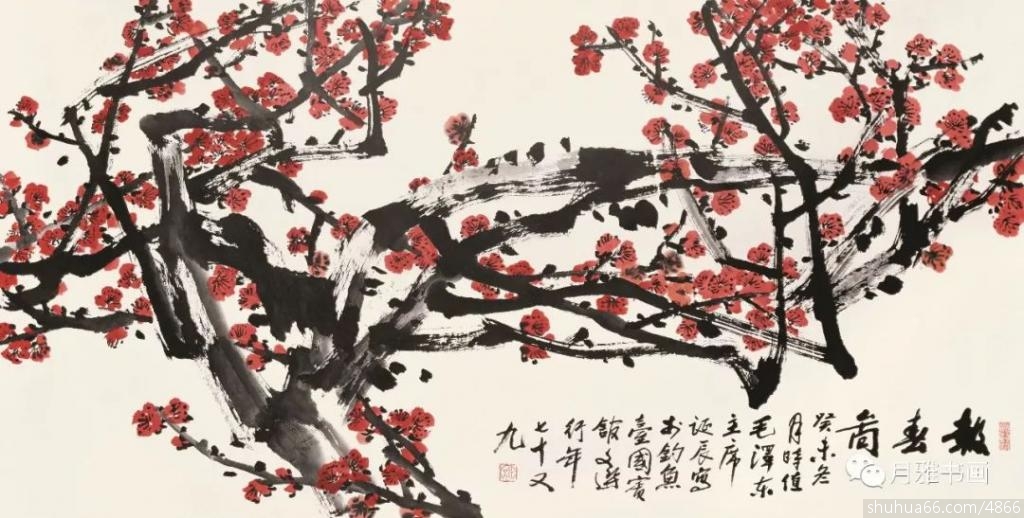 报春啚
癸未冬
月時值
毛澤东
主席
诞辰寫
扵钓魚
臺國賓
館文選
行年
七十又
九
月雅书画
shuhua66.com/4866